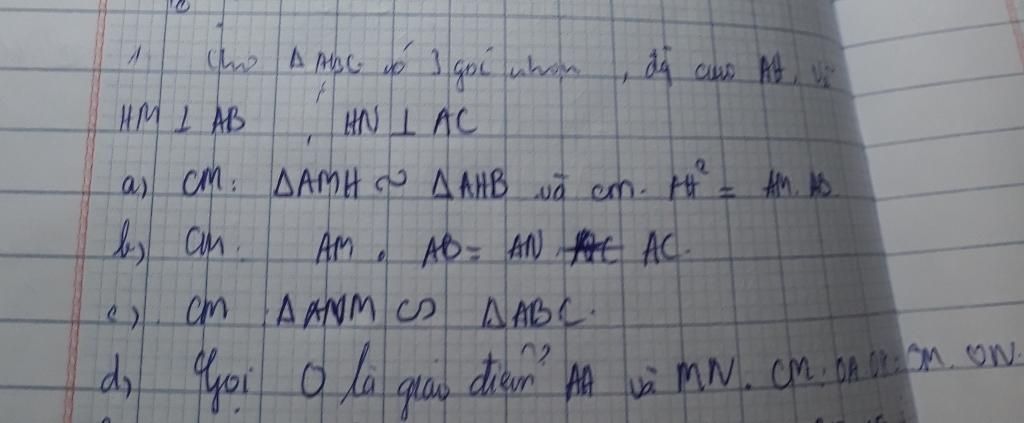 1. Cho ΔABC có 3 góc nhọn, đg cao AH, vẽ
HM ⊥ AB , HN ⊥ AC
a) CM: ΔAMH ∽ ΔAHB và cm. AH² = AM. AB
b) CM. AM . AB = AN . AC.
c) CM ΔANM ∽ ΔABC.
d) Gọi O là giao điểm AH và MN. CM: OA. OH = OM. ON.